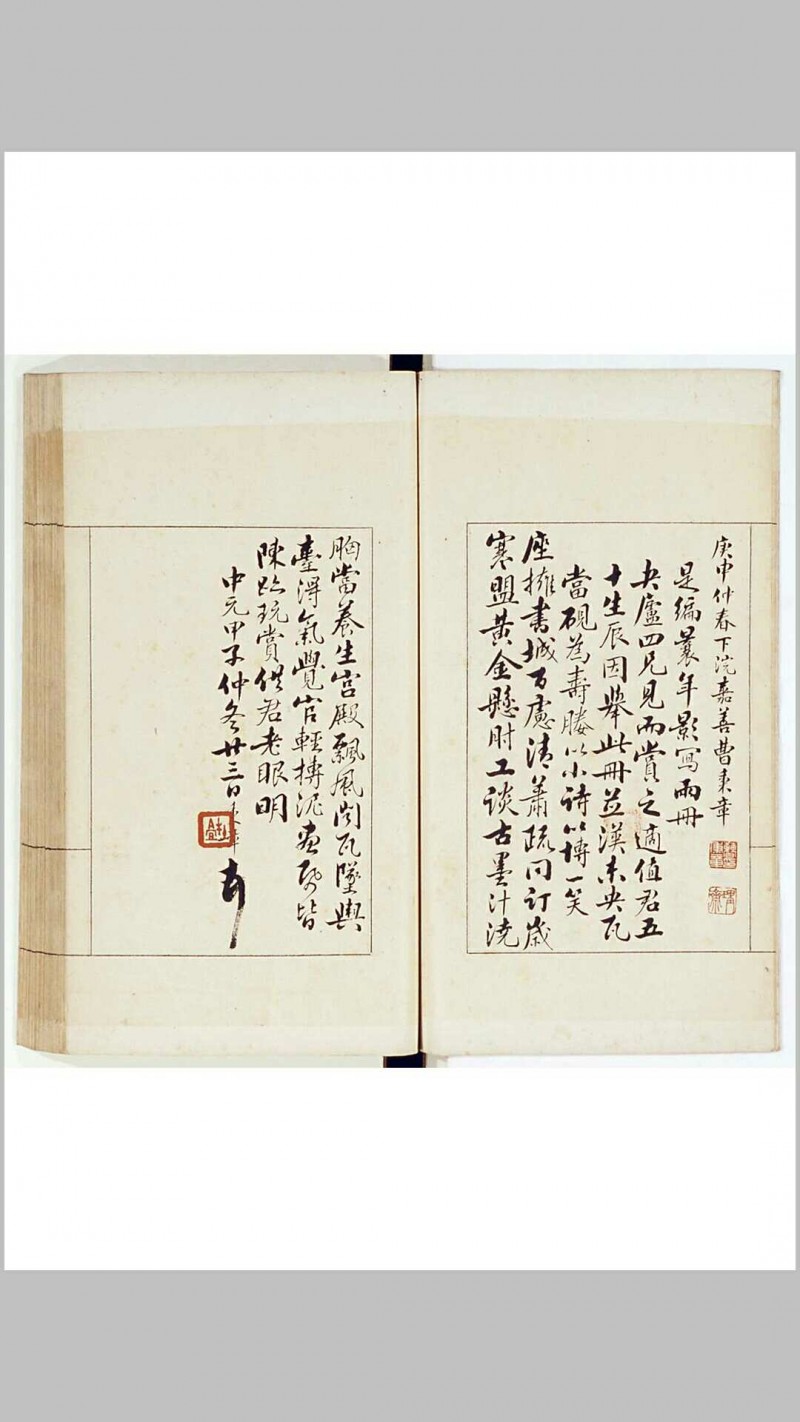 庚申仲春下浣嘉善曹秉章
是编曩年影写两册
央廬四兄見而賞之適值君五
十生辰因舉此冊並漢未央瓦
當硯為壽媵以小詩以博一笑
座擁書城百慮清蕭疏問訂歲
寒盟黃金懸肘工談古墨汁澆
胸當養生宮殿飄風闵瓦墜輿
臺得氣覺官輕摶泥畫皆
陳迹玩賞供君老眼明
中元甲子仲冬廿三日秉章